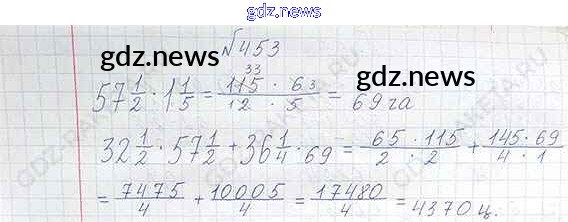 gdz.news
№453
gdz.news
gdz.news
57 1/2 : 1 1/5 = 115 · 6 3 / 12 · 5 = 69 га
32 1/2 · 57 1/2 + 36 1/4 · 69 = 65 · 115 / 2 · 2 + 145 · 69 / 4 · 1
= 7475/4 + 10005/4 = 17480/4 = 4370 ц.